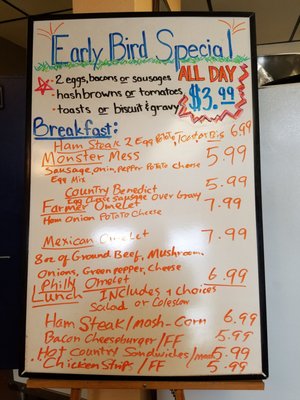 Early Bird Special
· 2 eggs, bacons or sausages
· hashbrowns or tomatoes
· toasts or biscuit & gravy
ALL DAY
$3.99
Breakfast:
Ham Steak 2 Egg Potato Toast or Bis 6.99
Monster Mess 5.99
Sausage, onin, pepper Potato cheese
Egg Mix
Country Benedict 5.99
Egg Cheese Sausage Over Gravy
Farmer Omelet 7.99
Ham Onion Potato Cheese
Mexican Omelet 7.99
8oz of Ground Beef, Mushroom,
Onions, Green pepper, cheese
Philly Omelet 6.99
Lunch INCludes 2 Choices
Salad or Coleslaw
Ham Steak/mash-Corn 6.99
Bacon Cheeseburger/FF 5.99
Hot Country Sandwiches/mash 5.99
Chicken Strips/FF 5.99